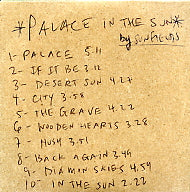 *PALACE IN THE SUN*
by SUNFIELDS
1- PALACE 5.11
2- IF IT BE 3.12
3- DESERT SUN 4.27
4- CITY 3.58
5- THE GRAVE 4.22
6- WOODEN HEARTS 3.28
7- HUSH 3.51
8- BACK AGAIN 3.44
9- DIAMON SKIES 4.54
10- IN THE SUN 2.23